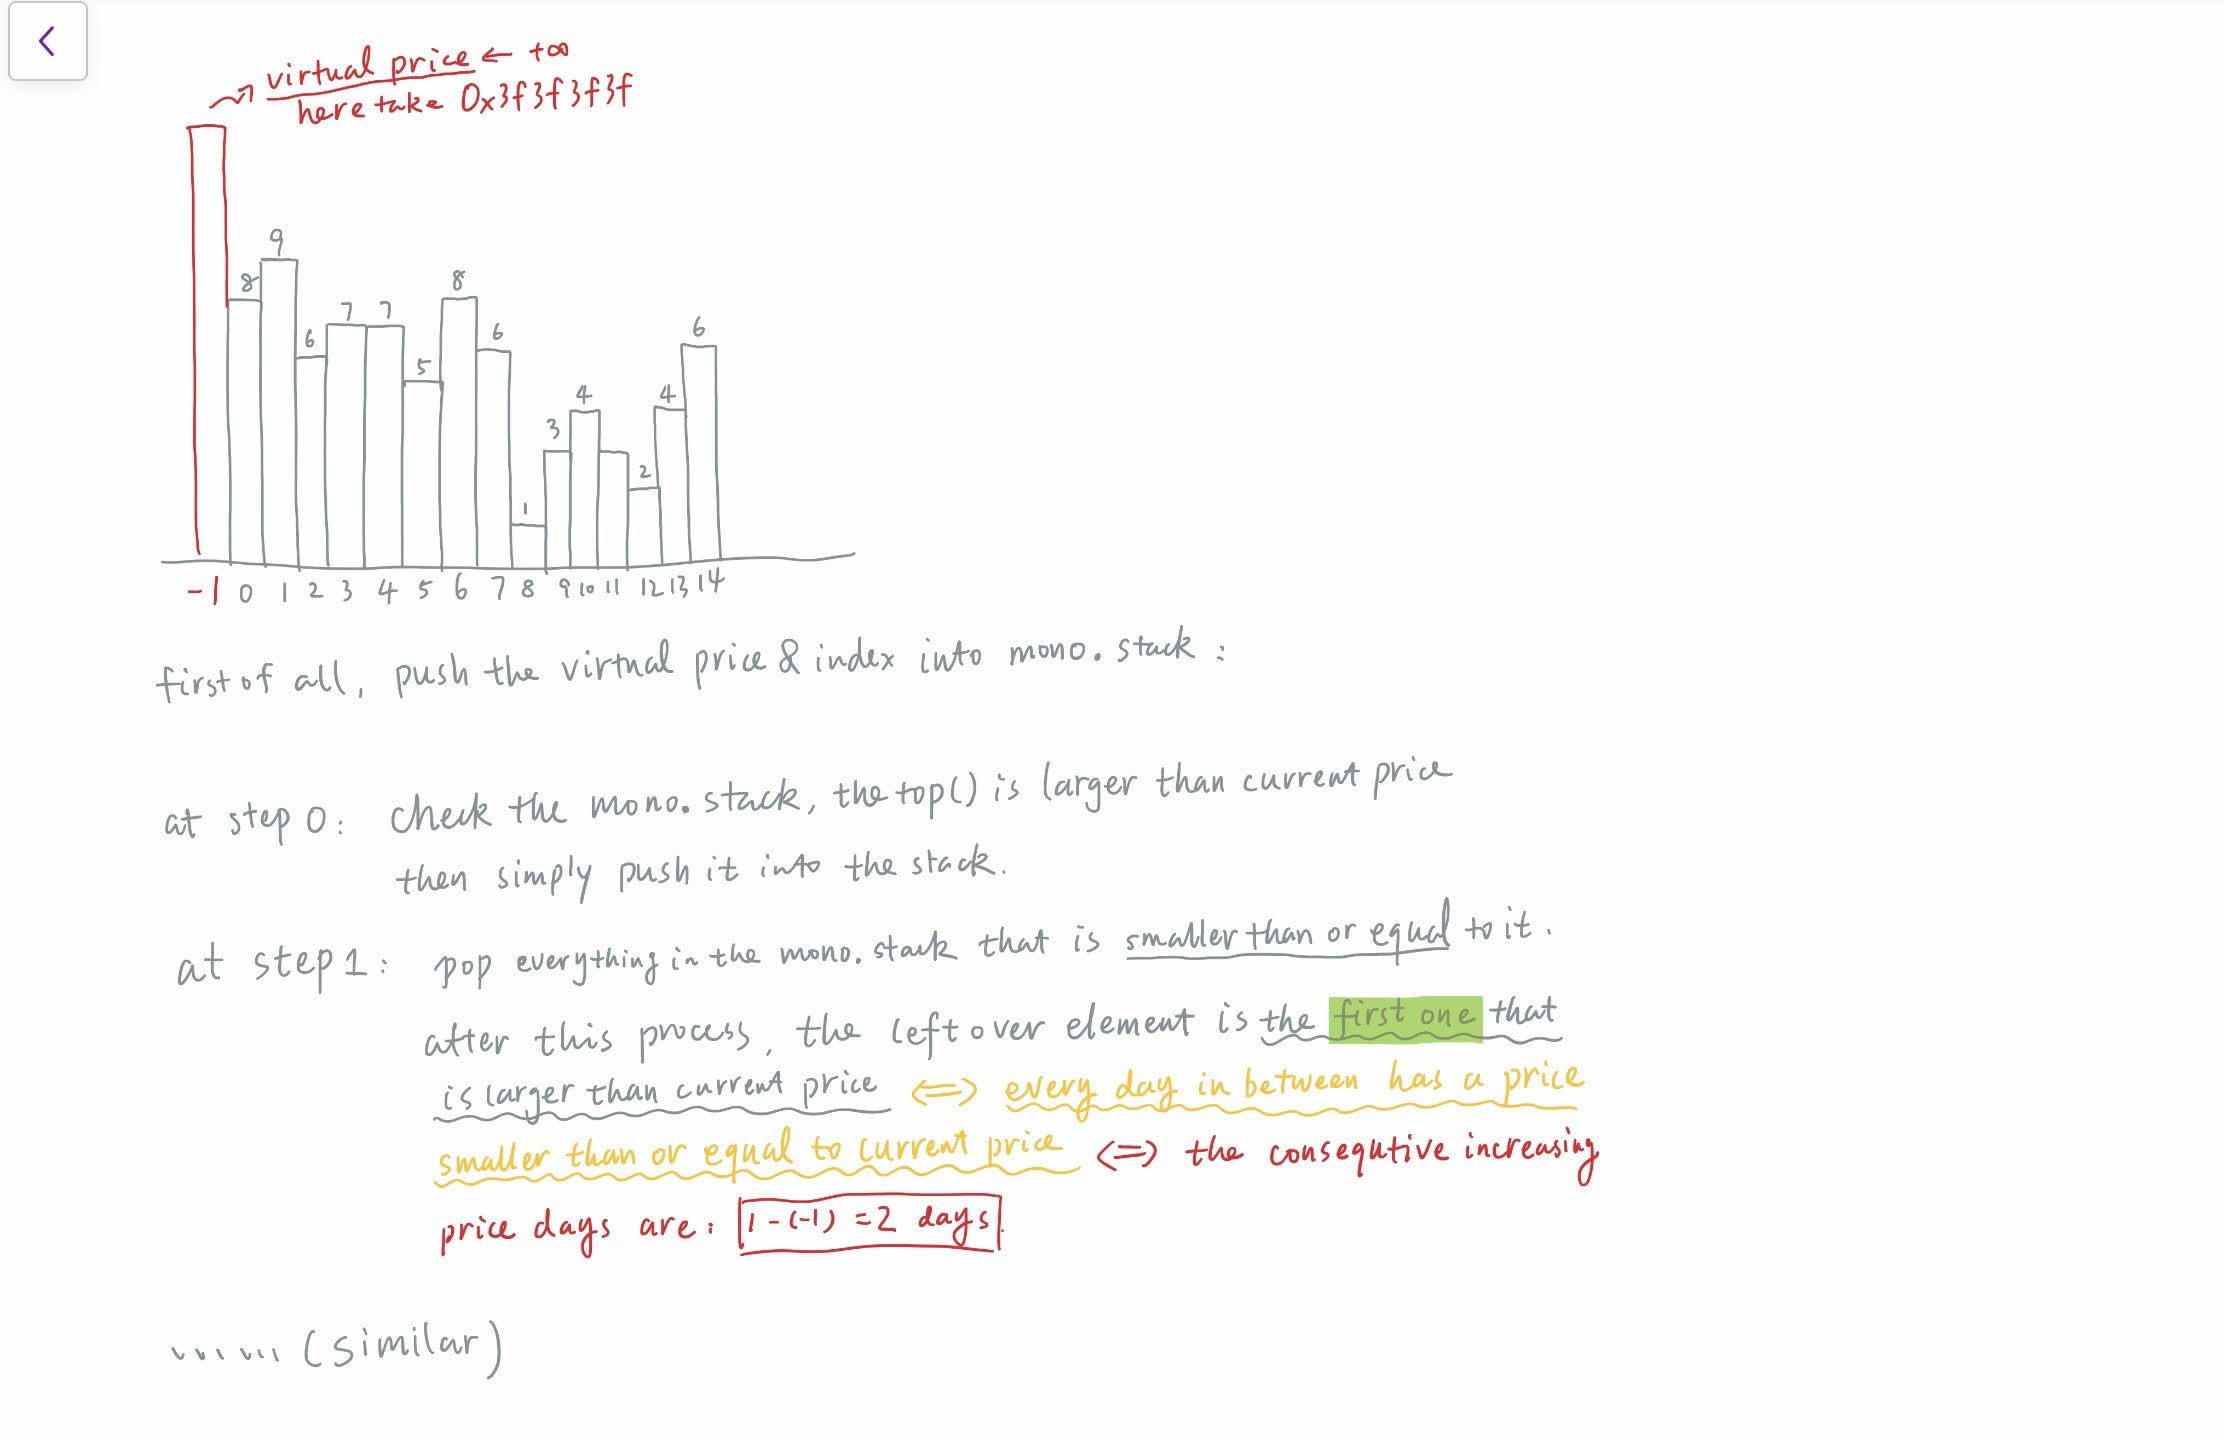 virtual price ← +∞
here take 0x3f3f3f3f
9
8
8
7 7
6
6
6
5
4
4
3
2
1
-1 0 1 2 3 4 5 6 7 8 9 10 11 12 13 14
first of all, push the virtual price & index into mono. stack :
at step 0: check the mono. stack, the top() is larger than current price
then simply push it into the stack.
at step 1: pop everything in the mono. stack that is smaller than or equal to it.
after this process, the left over element is the first one that
is larger than current price <=> every day in between has a price
smaller than or equal to current price <=> the consequtive increasing
price days are: 1 - (-1) = 2 days.
...... (similar)